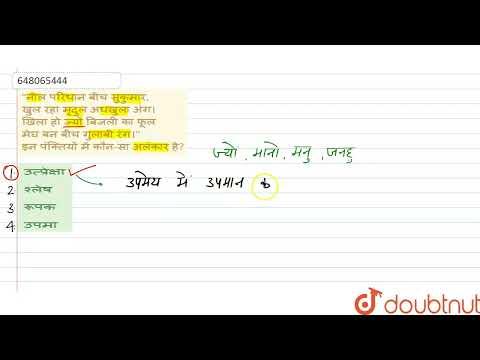 648065444
"नील परिधान बीच सुकुमार,
खुल रहा मृदुल अधखुला अंग।
खिला हो ज्यों बिजली का फूल
मेघ बन बीच गुलाबी रंग।"
इन पंक्तियों में कौन-सा अलंकार है?
ज्यों , मानो , मनु , जनहु
1 उत्प्रेक्षा
उपमेय में उपमान क
2 श्लेष
3 रूपक
4 उपमा
doubtnut